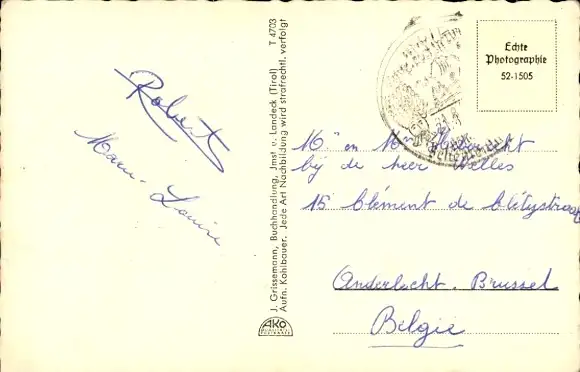 Robert
Marie-Louise
J. Grissemann, Buchhandlung, Jmst u. Landeck (Tirol) T 4703
Aufn. Kahlbauer. Jede Art Nachbildung wird strafrechtl. verfolgt
AKO
Echte
Photographie
52-1505
Mr en Mme
bij de heer Welles
15 Clément de Clétystraat
Anderlecht. Brussel
Belgie